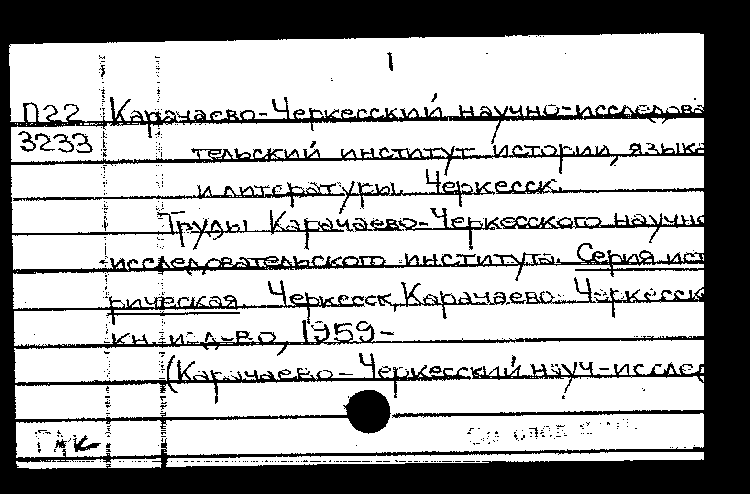 1
П22 Карачаево-Черкесский научно-исследова
3233
тельский институт истории, языка
и литературы. Черкесск.
Труды Карачаево-Черкесского научно
исследовательского института. Серия ист
рическая. Черкесск, Карачаево-Черкесск
кн. изд-во, 1959-
(Карачаево-Черкесский науч-исслед
ГАК
См след